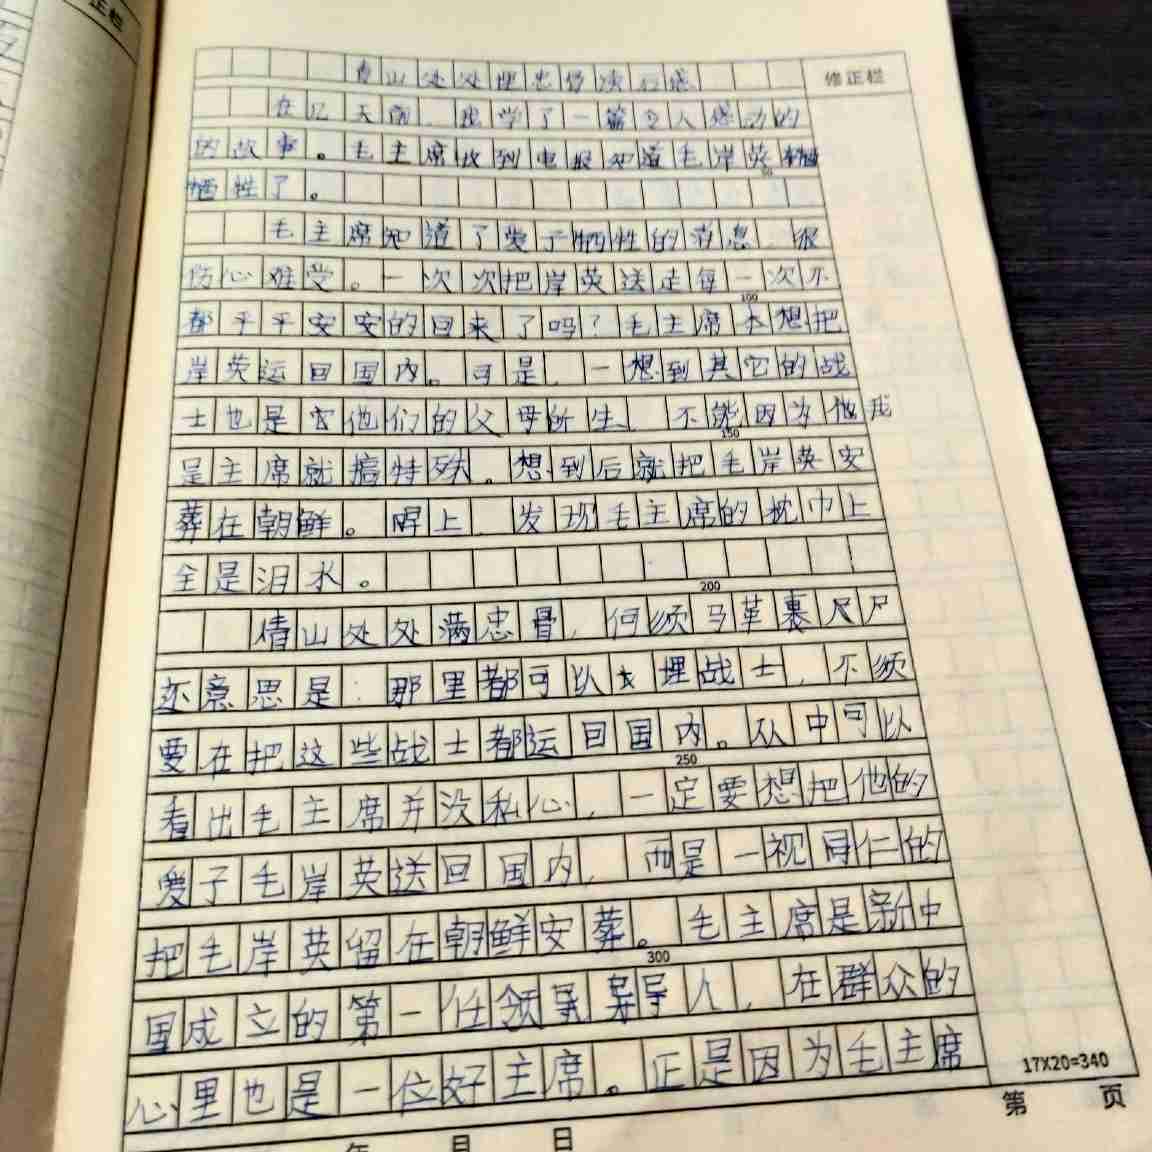 正栏
青山处处埋忠骨读后感
修正栏
在几天前，我学了一篇令人感动的
的故事。毛主席收到电报知道毛岸英牺
牺牲了。
毛主席知道了爱子牺牲的消息，很
伤心难受。一次次把岸英送走每一次不
100
都平平安安的回来了吗？毛主席本想把
岸英运回国内。可是，一想到其它的战
士也是它他们的父母所生，不能因为他我
150
是主席就搞特殊。想到后就把毛岸英安
葬在朝鲜。醒上，发现毛主席的枕巾上
全是泪水。
200
情山处处满忠骨，何须马革裹尺尸
还意思是：那里都可以埋战士，不须
要在把这些战士都运回国内。从中可以
250
看出毛主席并没私心，一定要想把他的
爱子毛岸英送回国内，而是一视同仁的
把毛岸英留在朝鲜安葬。毛主席是新中
300
国成立的第一任领导导人，在群众的
心里也是一位好主席。正是因为毛主席
17X20=340
第 页
年 月 日